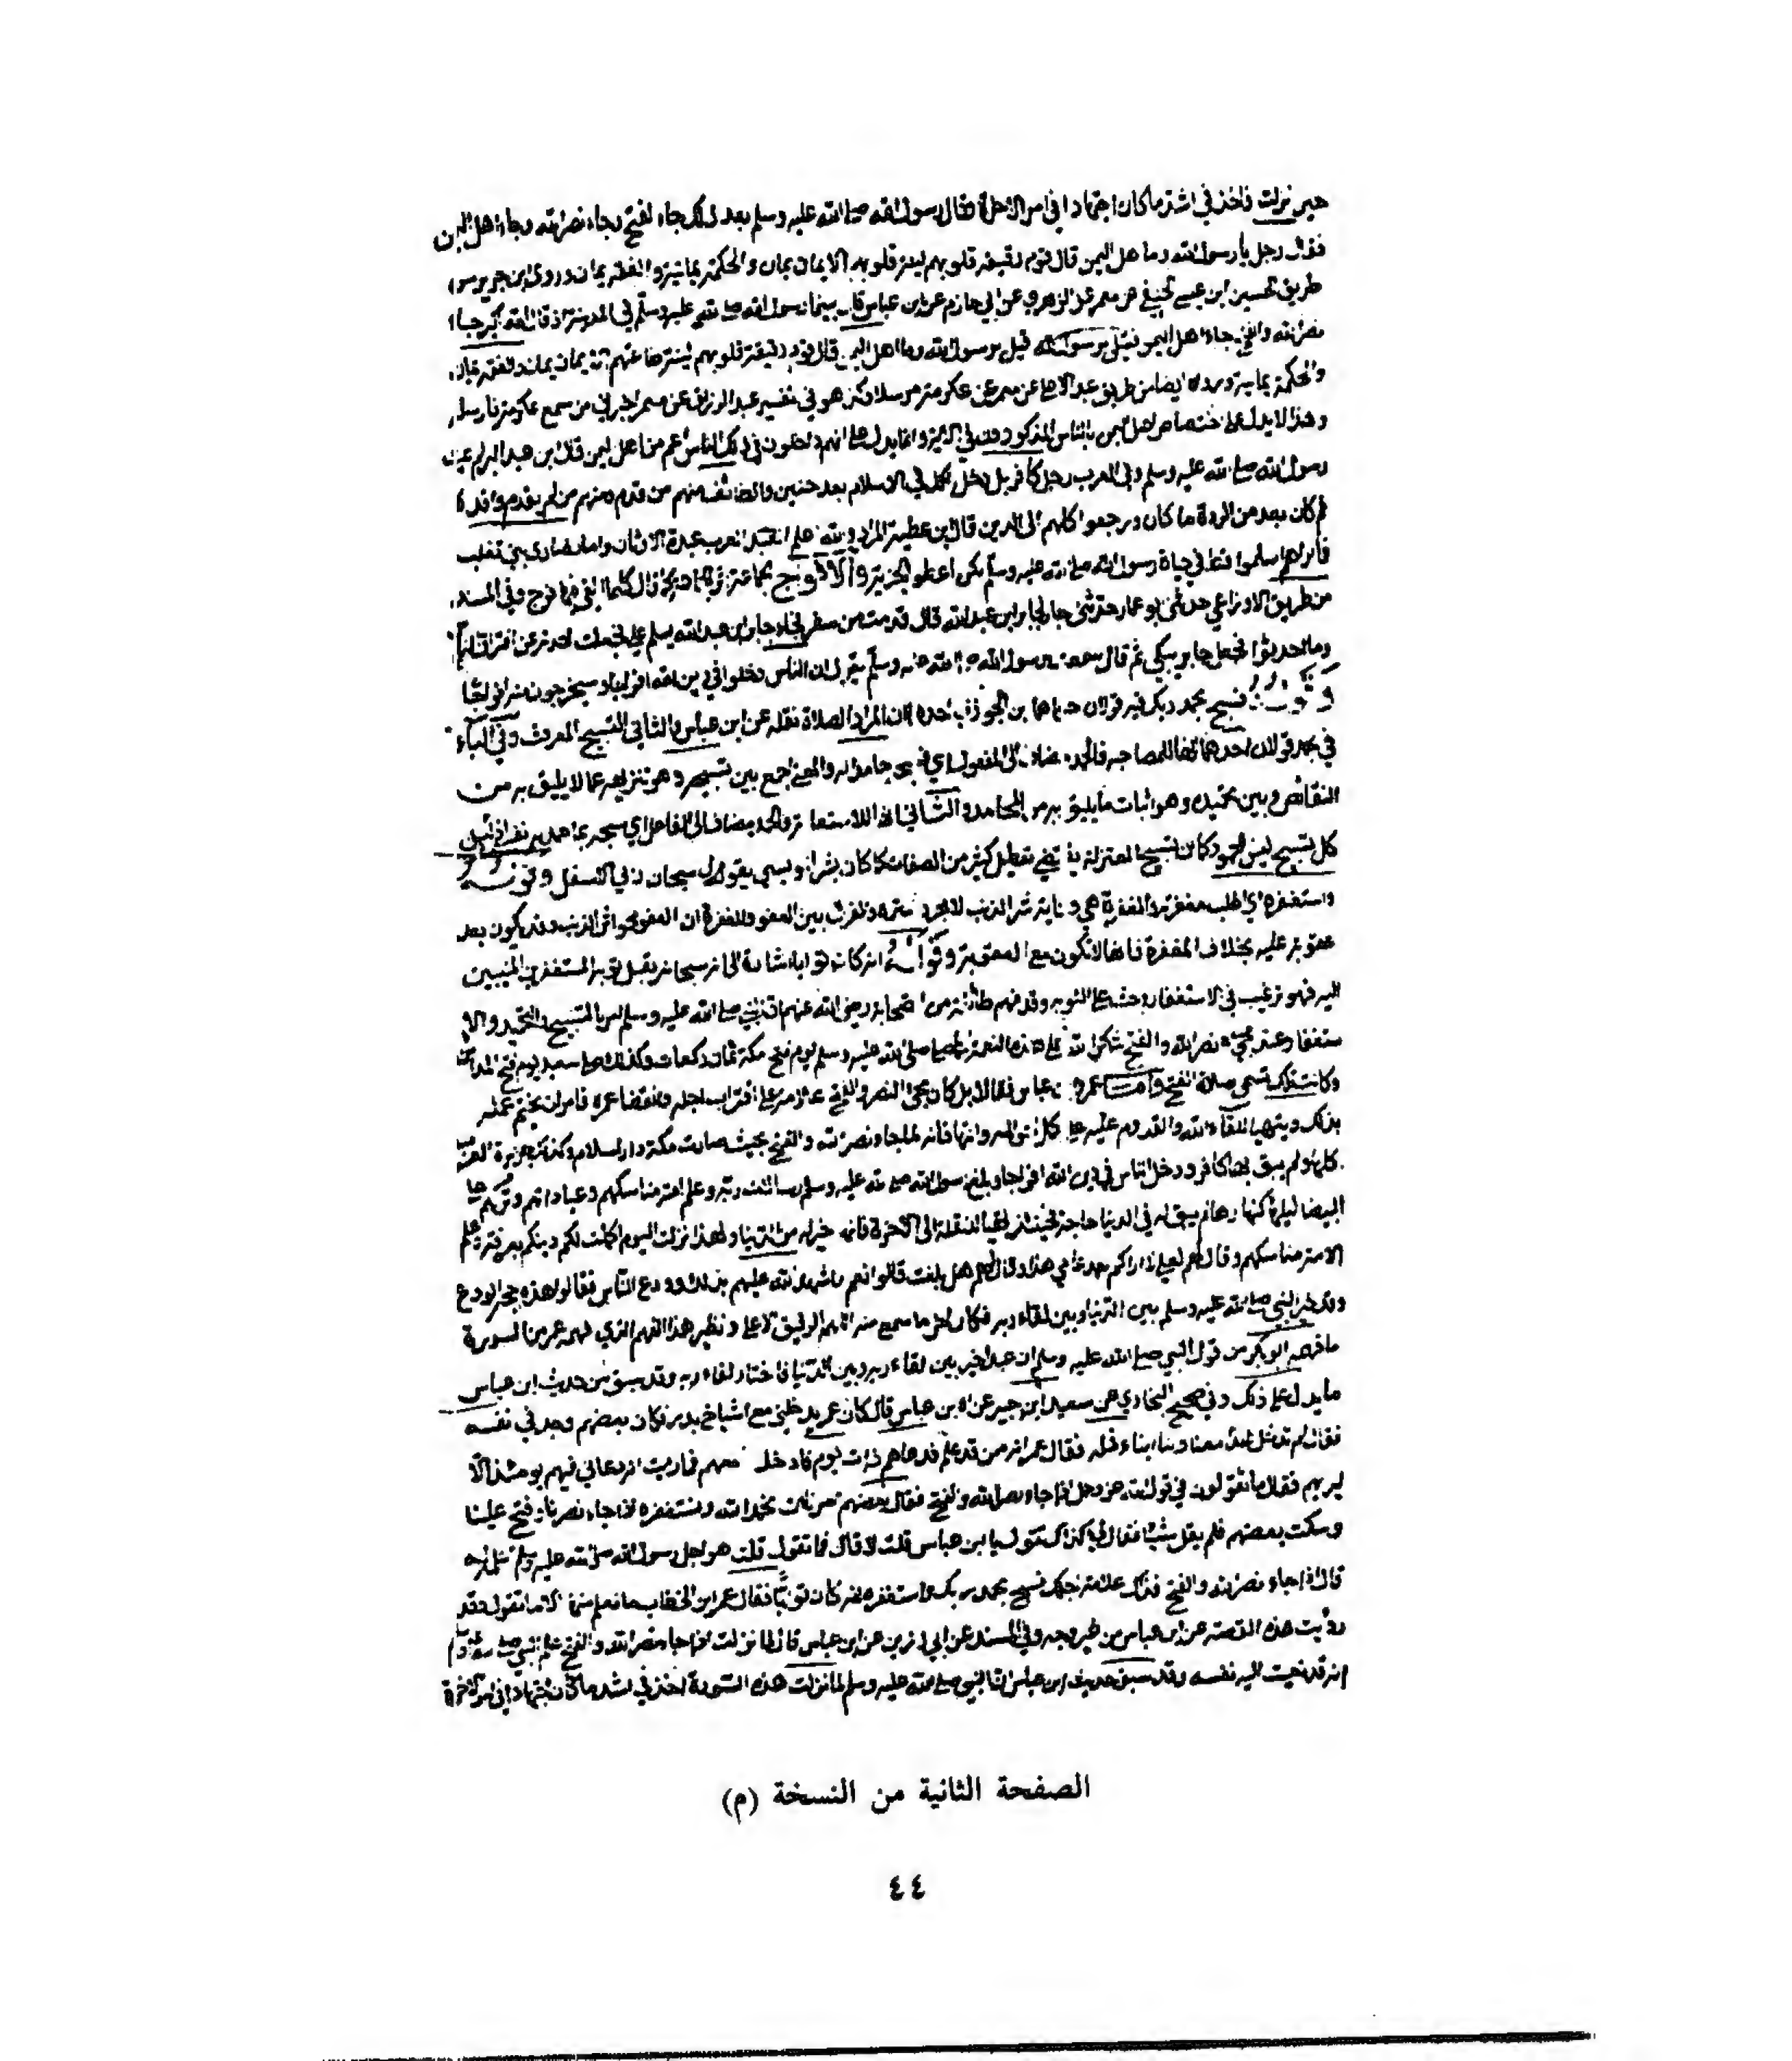 حين نزلت فاخذ في اشد ما كان اجتهادا في امر الاخرة فقال رسول الله صلى الله عليه وسلم بعد ذلك جاء الفتح وجاء نصر الله وجاء اهل اليمن
فقال رجل يا رسول الله وما اهل اليمن قال قوم رقيقة قلوبهم لينة قلوبهم الايمان يمان والحكمة يمانية والفقه يمان وروى ابن جرير من
طريق الحسين ابن عيسى الحنفي عن معمر عن الزهري عن ابي حازم عن ابن عباس قال بينما رسول الله صلى الله عليه وسلم في المدينة اذ قال الله اكبر جاء
نصر الله والفتح جاء اهل اليمن قيل يا رسول الله وما اهل اليمن قال قوم رقيقة قلوبهم لينة طباعهم الايمان يمان والفقه يمان
والحكمة يمانية ورواه ايضا من طريق عبد الاعلى عن معمر عن عكرمة مرسلا وكذا هو في تفسير عبد الرزاق عن معمر اخبرني من سمع عكرمة فارسله
وهذا لا يدل على اختصاص اهل اليمن بالناس المذكورين في الاية وانما يدل على انهم داخلون في ذلك فالناس اعم من اهل اليمن قال ابن عبد البر لم يمت
رسول الله صلى الله عليه وسلم وفي العرب رجل كافر بل دخل الكل في الاسلام بعد حنين والطائف منهم من قدم ومنهم من لم يقدم وافده
ثم كان بعد من الردة ما كان ورجعوا كلهم الى الدين قال ابن عطية المراد والله اعلم العرب عبدة الاوثان واما نصارى بني تغلب
فما اراهم اسلموا قط في حياة رسول الله صلى الله عليه وسلم لكن اعطوا الجزية والافواج الجماعة اثر الجماعة كما قال الله تعالى كلما القي فيها فوج وفي المسند
من طريق الاوزاعي حدثني ابو عمار حدثني جار لجابر ابن عبد الله قال قدمت من سفر فجاء جابر ابن عبد الله يسلم علي فجعلت احدثه عن افتراق الناس
وما احدثوا فجعل جابر يبكي ثم قال سمعت رسول الله صلى الله عليه وسلم يقول ان الناس دخلوا في دين الله افواجا وسيخرجون منه افواجا
وقوله فسبح بحمد ربك فيه قولان حكاهما ابن الجوزي احدهما ان المراد الصلاة نقله عن ابن عباس والثاني التسبيح المعروف وفي الباء
في بحمد قولان احدهما انها للمصاحبة فالحمد مضاف الى المفعول اي فسبحه حامدا له والمعنى اجمع بين تسبيحه وهو تنزيهه عما لا يليق به من
النقائص وبين تحميده وهو اثبات ما يليق به من المحامد والثاني انها للاستعانة والحمد مضاف الى الفاعل اي سبحه بما حمد به نفسه اذ ليس
كل تسبيح بمحمود كما ان تسبيح المعتزلة يقتضي تعطيل كثير من الصفات كما كان بشر المريسي يقول سبحان ربي الاسفل وقوله
واستغفره اي اطلب مغفرته والمغفرة هي وقاية شر الذنب لا مجرد ستره والفرق بين العفو والمغفرة ان العفو محو اثر الذنب وقد يكون بعد
عقوبة عليه بخلاف المغفرة فانها لا تكون مع العقوبة وقوله انه كان توابا اشارة الى انه سبحانه يقبل توبة المستغفرين المنيبين
اليه فهو ترغيب في الاستغفار وحث على التوبة وقد فهم طائفة من الصحابة رضي الله عنهم ان النبي صلى الله عليه وسلم امر بالتسبيح والتحميد والا
ستغفار عند مجيء نصر الله والفتح شكرا لله على هذه النعمة كما صلى صلى الله عليه وسلم يوم فتح مكة ثمان ركعات وكذلك صلى سعد يوم فتح المدائن
وكانت تلك تسمى صلاة الفتح واما عمر وابن عباس فقالا بل كان مجيء النصر والفتح علامة على اقتراب اجله وانقضاء عمره فامر ان يختم عمله
بذلك ويتهيا للقاء الله والقدوم عليه على اكمل احواله واتمها فانه لما جاء نصر الله والفتح بحيث صارت مكة دار اسلام وكذلك جزيرة العرب
كلها ولم يبق بها كافر ودخل الناس في دين الله افواجا وبلغ رسول الله صلى الله عليه وسلم رسالات ربه وعلم امته مناسكهم وعباداتهم وتركهم على
البيضاء ليلها كنهارها لم يبق له في الدنيا حاجة فحينئذ تهيا للنقلة الى الاخرة فانها خير له من الدنيا ولهذا نزلت اليوم اكملت لكم دينكم بعرفة وعلم
الامة مناسكهم وقال لهم لعلي لا اراكم بعد عامي هذا وقال لهم هل بلغت قالوا نعم واشهد الله عليهم بذلك وودع الناس فقالوا هذه حجة الوداع
وقد خير النبي صلى الله عليه وسلم بين الدنيا وبين لقاء ربه فكان اخر ما سمع منه اللهم الرفيق الاعلى ونظير هذا الفهم الذي فهمه عمر من السورة
ما فهمه ابو بكر من قول النبي صلى الله عليه وسلم ان عبدا خير بين لقاء ربه وبين الدنيا فاختار لقاء ربه وقد سبق من حديث ابن عباس
ما يدل على ذلك وفي صحيح البخاري عن سعيد ابن جبير عن ابن عباس قال كان عمر يدخلني مع اشياخ بدر فكان بعضهم وجد في نفسه
فقال لم تدخل هذا معنا ولنا ابناء مثله فقال عمر انه ممن قد علمتم فدعاهم ذات يوم فادخله معهم فما رايت انه دعاني فيهم يومئذ الا
ليريهم فقال ما تقولون في قول الله عز وجل اذا جاء نصر الله والفتح فقال بعضهم امرنا ان نحمد الله ونستغفره اذا جاء نصرنا وفتح علينا
وسكت بعضهم فلم يقل شيئا فقال لي اكذاك تقول يا ابن عباس قلت لا قال فما تقول قلت هو اجل رسول الله صلى الله عليه وسلم اعلمه له
قال اذا جاء نصر الله والفتح فذلك علامة اجلك فسبح بحمد ربك واستغفره انه كان توابا فقال عمر ابن الخطاب ما اعلم منها الا ما تقول وقد
رويت هذه القصة عن ابن عباس من غير وجه وفي المسند عن ابي رزين عن ابن عباس قال لما نزلت اذا جاء نصر الله والفتح علم النبي صلى الله عليه وسلم
انه قد نعيت اليه نفسه وقد سبق حديث ابن عباس ان النبي صلى الله عليه وسلم لما نزلت هذه السورة اخذ في اشد ما كان اجتهادا في امر الاخرة
الصفحة الثانية من النسخة (م)
٤٤